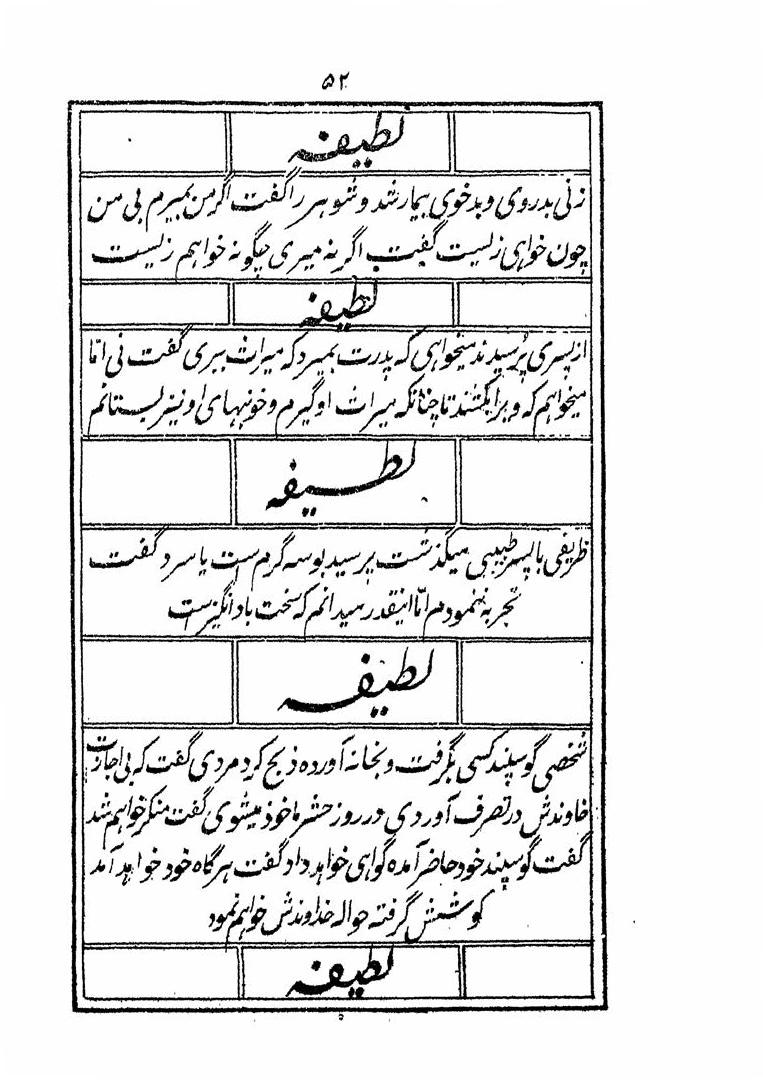 ۵۲
لطیفه
زنی بدروی و بدخوی بیمار شد و شوهر را گفت اگر من بمیرم بی من
چون خواهی زلیست گفت اگر نه میری چگونه خواهم زلیست
لطیفه
از پسری پرسیدند میخواهی که پدرت بمیرد که میراث ببری گفت نی اما
میخواهم که ویرا بکشند تا چنانکه میراث او گیرم و خونبهای او نیز بستانم
لطیفه
ظریفی با پسر طبیبی میگذشت پرسید بوسه گرم ست یا سرد گفت
تجربه ننمودم امّا اینقدر میدانم که سخت باد انگیزست
لطیفه
شخصی گوسپند کسی بگرفت و بخانه آورده ذبح کرد مردی گفت که بی اجازت
خاوندش در تصرف آوردی در روز حشر ماخوذ میشوی گفت منکر خواهم شد
گفت گوسپند خود حاضر آمده گواهی خواهد داد گفت هرگاه خود خواهد آمد
گوشش گرفته حواله خداوندش خواهم نمود
لطیفه